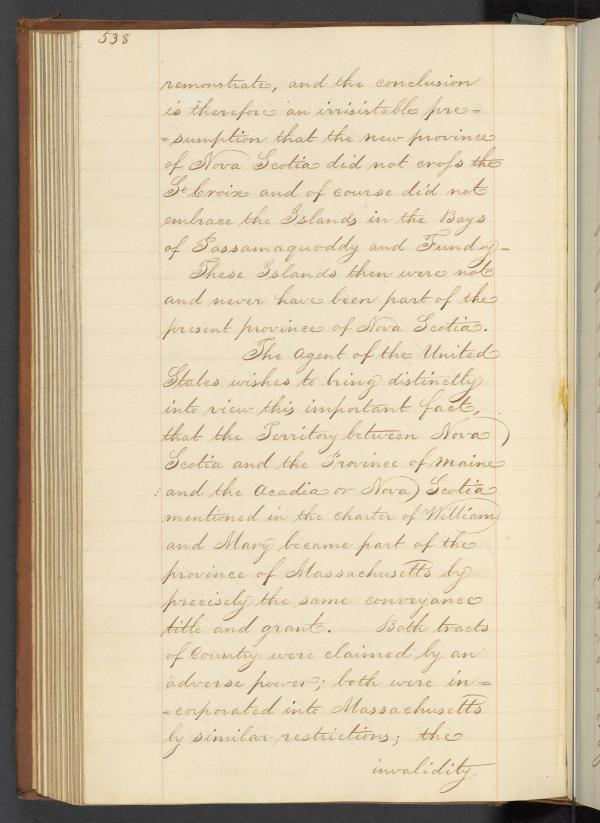 538
remonstrate, and the conclusion
is therefore an irrisistable pre=
=sumption that the new province
of Nova Scotia did not cross the
St Croix and of course did not
embrace the Islands in the Bays
of Passamaquoddy and Fundy-
These Islands then were not
and never have been part of the
present province of Nova Scotia.
The Agent of the United
States wishes to bring distinctly
into view this important fact,
that the Territory between Nova
Scotia and the Province of Maine
and the Acadia or Nova Scotia
mentioned in the charter of William
and Mary became part of the
province of Massachusetts by
precisely the same conveyance
title and grant. Both tracts
of Country were claimed by an
adverse power; both were in=
=corporated into Massachusetts
by similar restrictions; the
invalidity